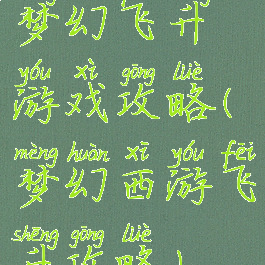 梦幻飞升
yóu xì gōng lüè
游戏攻略(
mèng huàn xī yóu fēi
梦幻西游飞
shēng gōng lüè
升攻略)